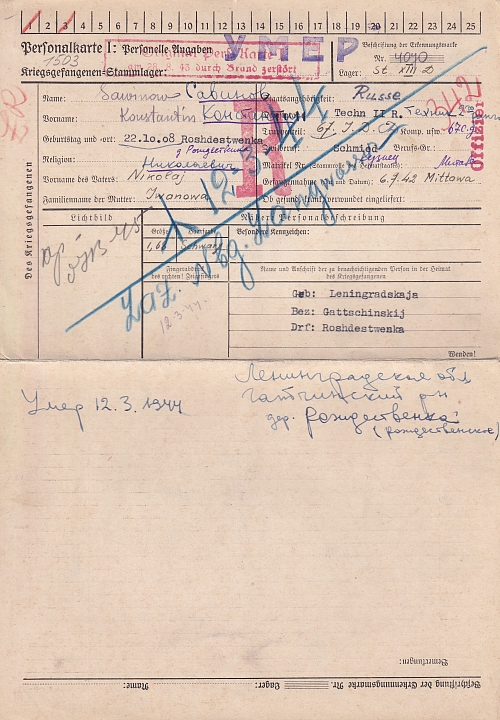 1 2 3 4 5 6 7 8 9 10 11 12 13 14 15 16 17 18 19 20 21 22 23 24 25
Personalkarte I: Personelle Angaben
УМЕР
Beschriftung der Erkennungsmarke
1503
Original Pers. Karte
Nr. 4090
Kriegsgefangenen-Stammlager:
am 28.8.43 durch Brand zerstört
Lager: St. XIII D
Des Kriegsgefangenen
Name: Sawinow Савинов
Staatsangehörigkeit: Russe
Konstantin
Techn II R.
Geburtstag und -ort: 22.10.08 Roshdestwenka
Truppenteil: 67. I.D.
Komp. usw.
Offizier
Religion:
Schmied
Berufs-Gr.:
Николаевич
Vorname des Vaters: Nikolaj
6.7.42 Mittowa
Familienname der Mutter: Iwanowa
Ob gesund, krank, verwundet eingeliefert:
R
Lichtbild
Nähere Personalbeschreibung
Besondere Kennzeichen:
1,68 Schwarz
Fingerabdruck
des rechten Zeigefingers
Name und Anschrift der zu benachrichtigenden Person in der Heimat
des Kriegsgefangenen
12.3.44
Laz. Nbg. Langwasser
12.3.44.
Geb: Leningradskaja
Bez: Gattschinskij
Drf: Roshdestwenka
Wenden!
Умер 12.3.1944
Ленинградская обл
Гатчинский рн
дер. Рождественка
(рождественское)
Bemerkungen:
Name:
Lager:
Nr.
Beschriftung der Erkennungsmarke